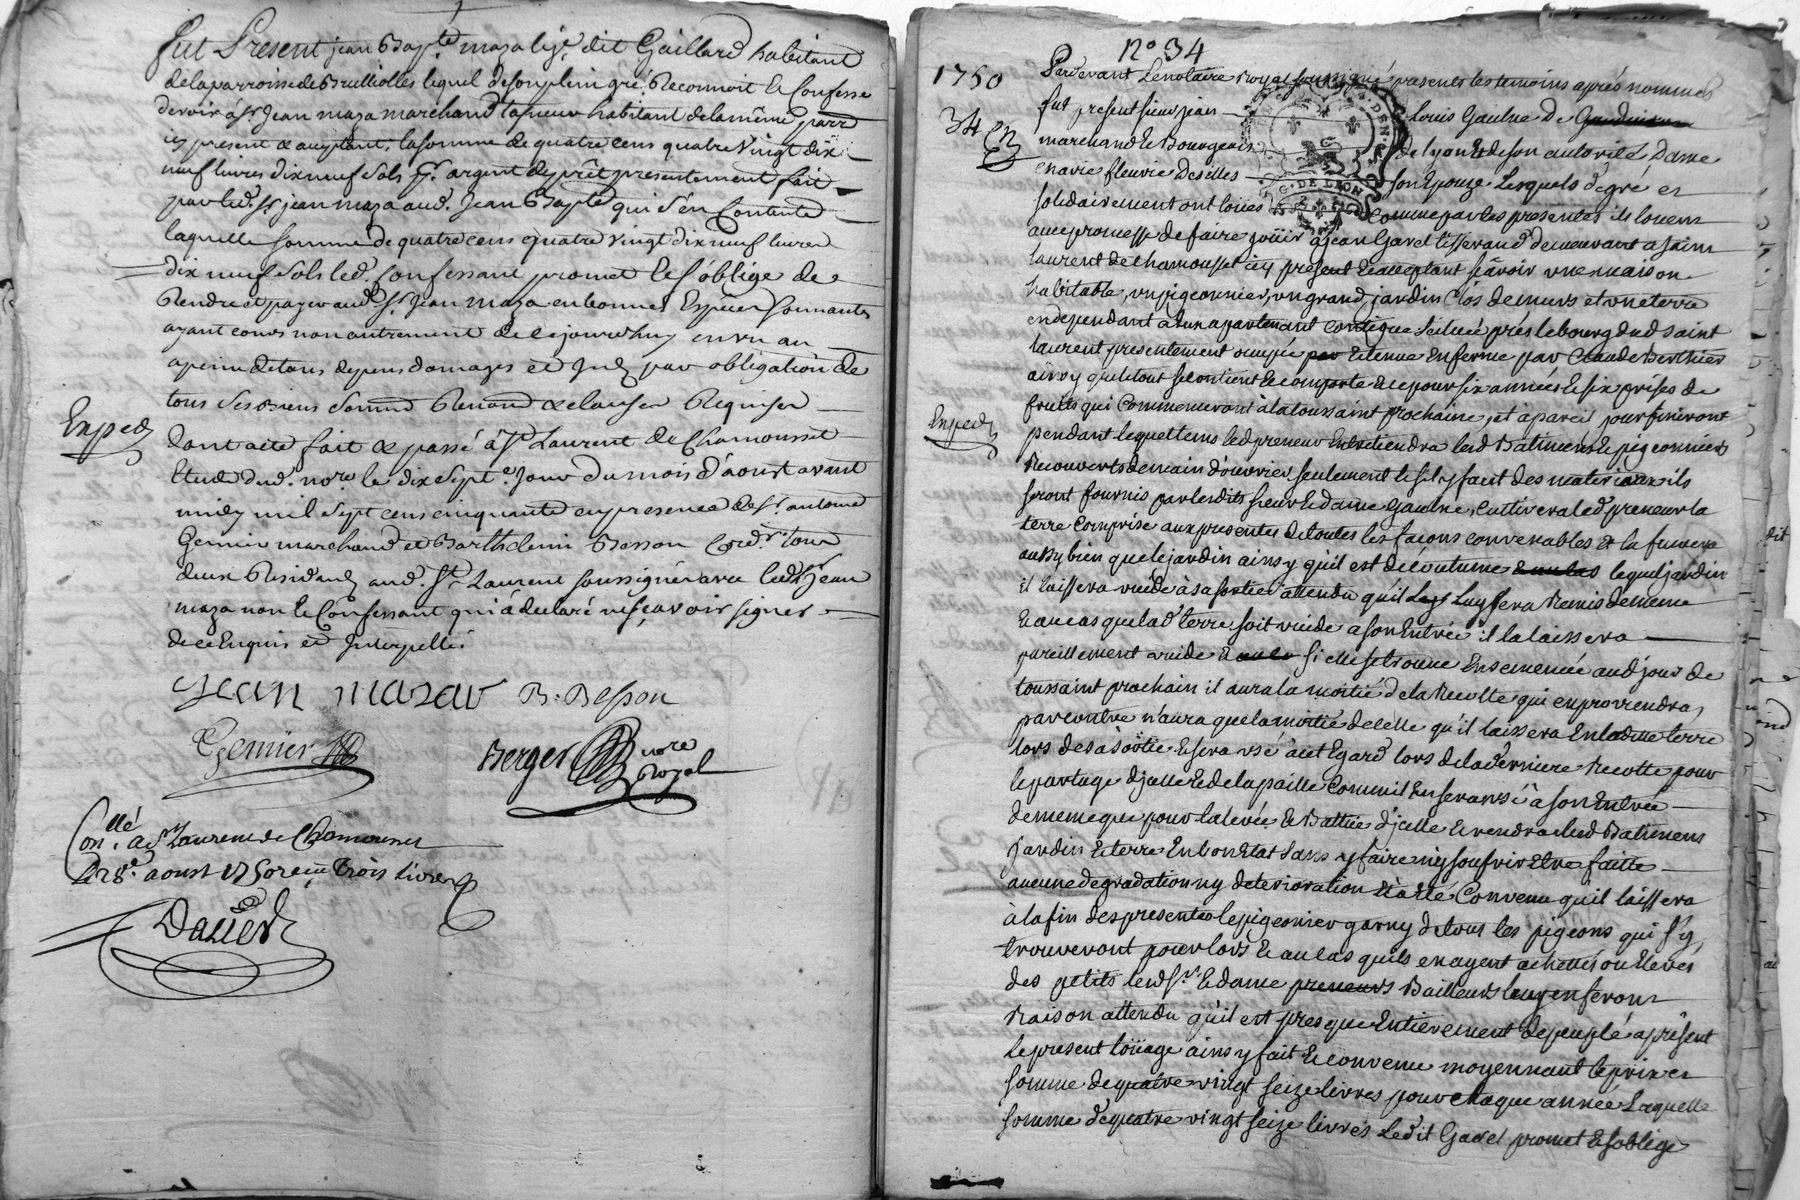 fut Present jean Bapte maza lizé dit Gaillard habitant
de la parroisse de Brulliolles lequel de son plein gré Reconnoit & Confesse
devoir à Sr. Jean maza marchand habitant de la même parr
icy present & acceptant, la somme de quatre cens quatre vingt dix
neuf livres dix neuf sols pr. argent de prêt presentement fait
par led. Sr. jean maza aud. Jean Bapte qui s'en Contente
laquelle somme de quatre cens quatre vingt dix neuf livres
dix neuf sols led. Confessant promet & s'oblige de
Rendre et payer aud. Sr. Jean maza en bonnes Especes sonnantes
ayant cours non autrement de cejourdhuy en un an
a peine de tous depens domages et par obligation de
tous ses biens Renon & clauses Requises
Exped
Dont acte fait & passé à St. Laurent de Chamousset
Etude dud. nore. le dix sept.e Jour du mois d'aoust avant
midy mil sept cens cinquante en presence de Sr. antoine
Gennier marchand et Barthelemi Besson tous
deux Residands aud. St. Laurent soussignés avec led. Sr. Jean
maza non le Confessant qui à declaré ne sçavoir signer
de ce Enquis et Interpellé.
Jean mazar B. Besson
Gennier Berger nore Royal
Conllé. a St Laurent de Chamousset
Le 28e. aoust 1750 reçu trois livres
Dauier
no 34
1750
Pardevant Le notaire Royal soussigné presents les temoins après nommes
34
fut present sieur jean Louis Gaulne De
marchand & Bourgeois de lyon & de son autorité, Dame
marie fleurie Deselles son Epouze Lesquels de gré et
G. DE LION
solidairement ont loües Comme par les presentes ils louent
avec promesse de faire joüir à Jean Gavet tisserand demeurant a saint
laurent de chamousset icy present & acceptant sçavoir une maison
habitable, un pigeonnier, un grand jardin clos de murs et une terre
en dependant à lun apartenant contigue scituée près le bourg dud saint
laurent presentement ocupée par & tenue en ferme par Claude Berthier
ainsy que le tout se contient & comporte & ce pour six années & six prises de
fruits qui Commenceront à la toussaint prochaine, et à pareil jour finiront
Exped
pendant lequel tems led preneur Entretiendra lesd Batimens & pigeonnier
Recouverts de main d'ouvrier seulement & s'il y faut des materiaux ils
seront fournis par lesdits sieur & dame Gaulne, cultivera led preneur la
terre comprise aux presentes de toutes les façons convenables et la fumera
aussy bien que le jardin ainsy qu'il est de coutume lequel jardin
il laissera vuide à sa sortie attendu qu'il Luy sera Remis de meme
& au cas que lad terre soit vuide a son Entrée il la laissera
pareillement vuide si elle se trouve Ensemencée aud jour de
toussaint prochain il aura la moitié de la Recolte qui en proviendra,
par contre n'aura que la moitié de celle qu'il laissera En ladite terre
lors de sa sortie & sera usé à cet Egard lors de la derniere Recolte pour
le partage d'jcelle & de la paille comme il en sera usé à son Entrée
de meme que pour la levée & Battue d'jcelle & rendra lesd Batimens
jardin & terre En bon Etat sans y faire ny soufrir Etre faitte
aucune degradation ny deterioration & à été Convenu qu'il laissera
à la fin des presentes le pigeonier garny de tous les pigeons qui s'y
trouveront pour lors & au cas qu'ils en ayent achettés ou Elevés
des petits lesd Sr. & dame preneurs Bailleurs leur en feront
Raison attendu qu'il est presque Entierement depeuplé à present
le present loüage ainsy fait & convenu moyennant le prix et
somme de quatre vingt seize livres pour chaque année Laquelle
somme de quatre vingt seize livres Ledit Gavet promet & s'oblige